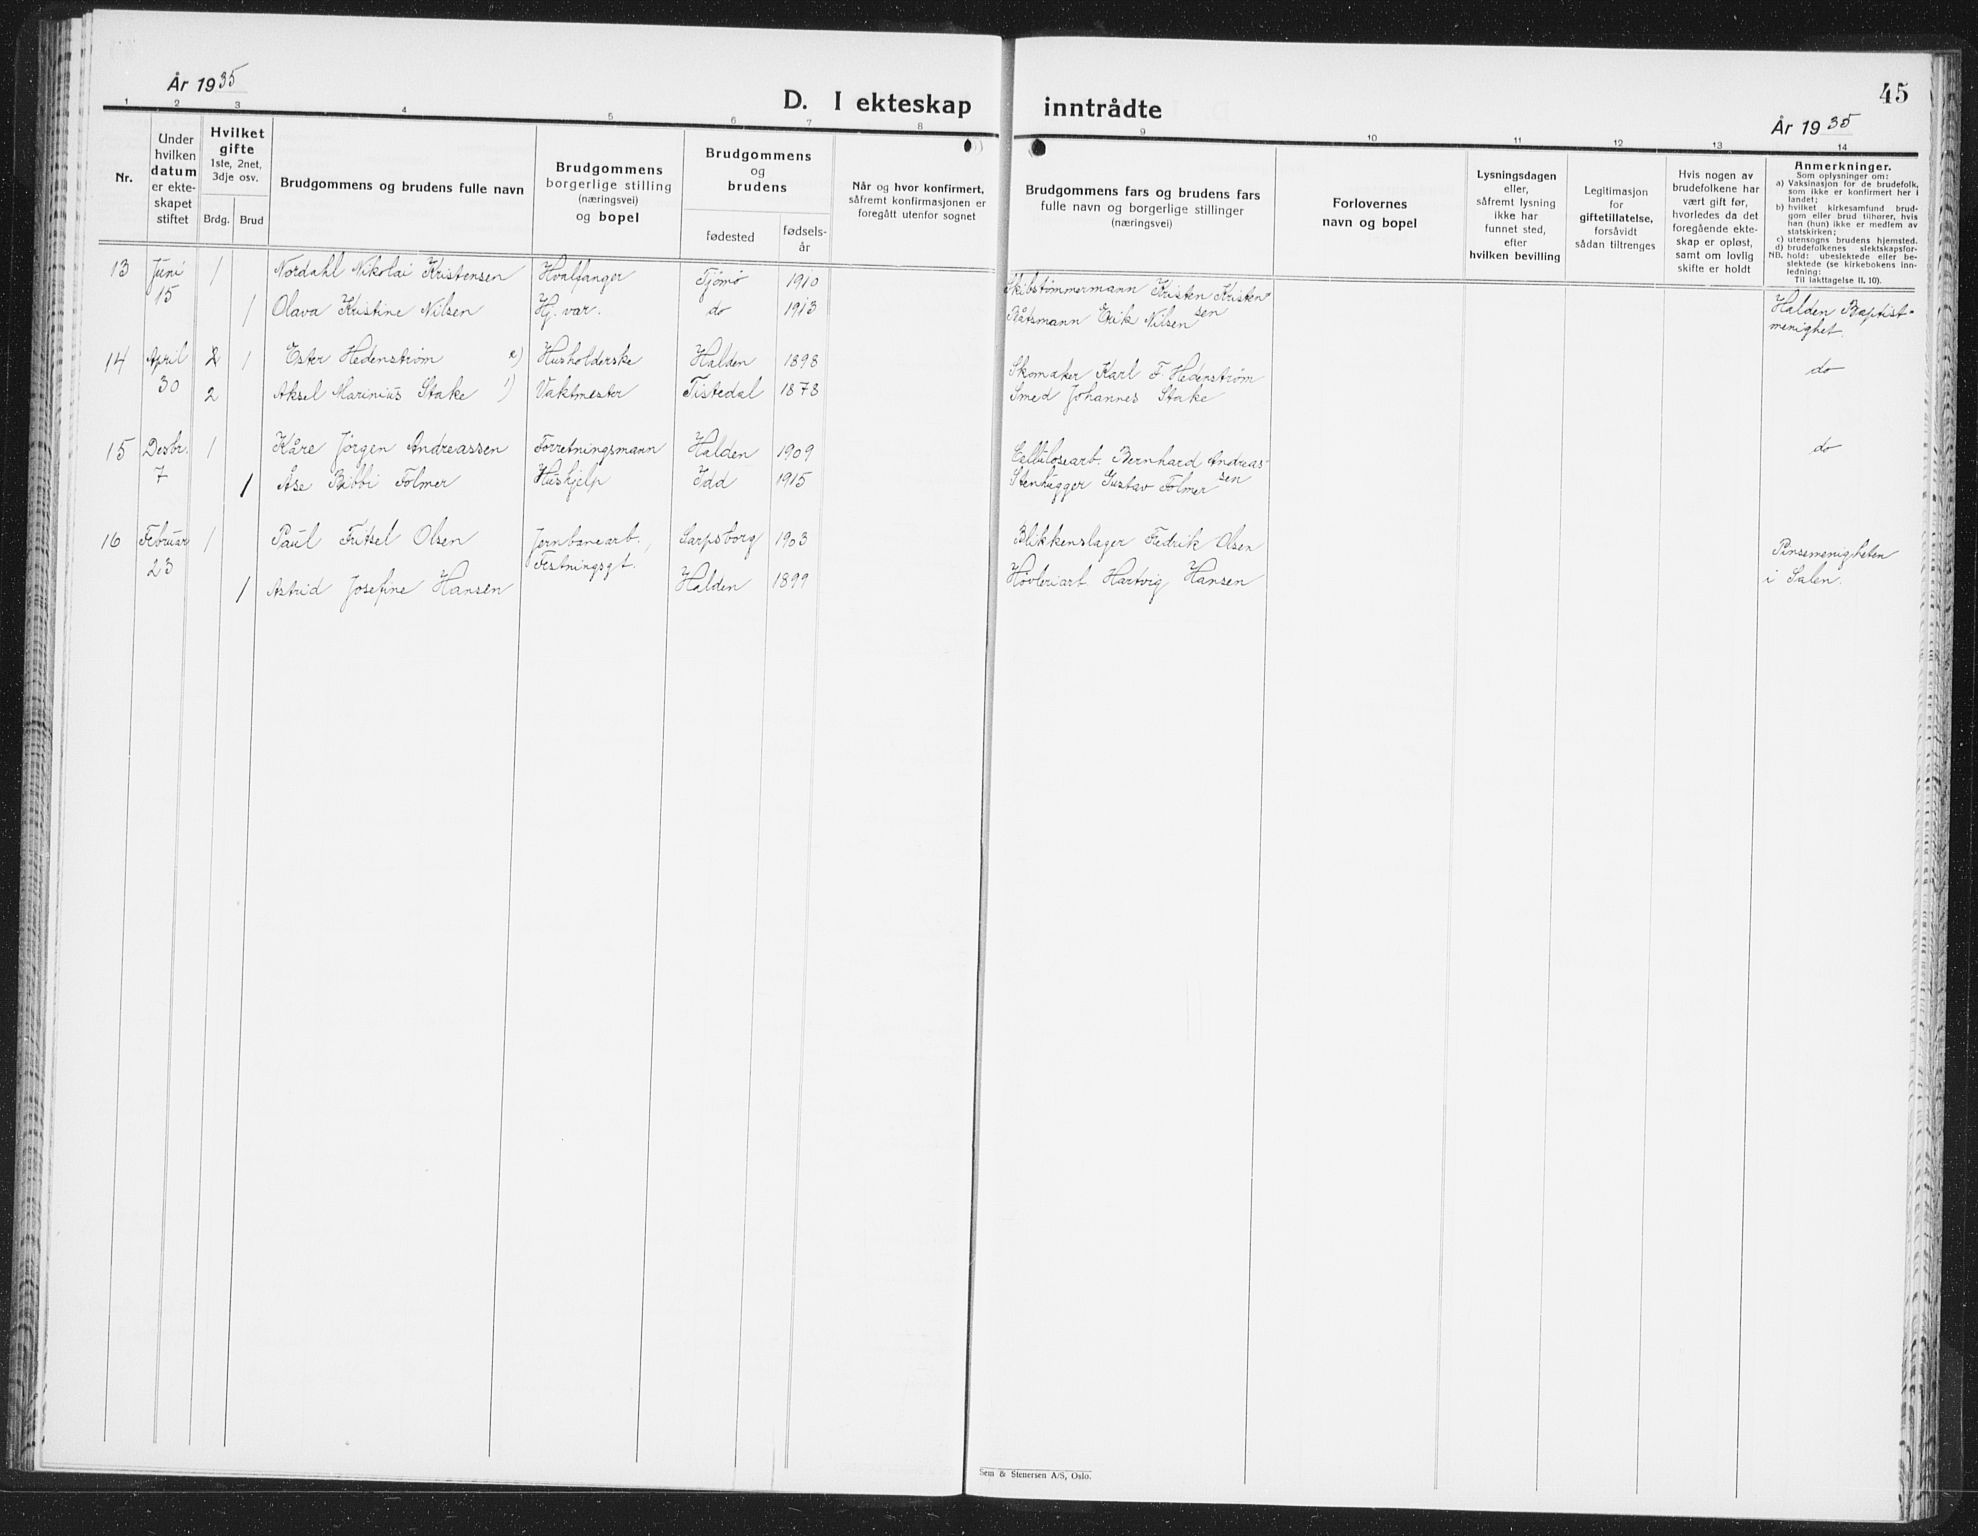 År 1935
D. I ekteskap inntrådte
45
År 1935
1 2 3 4 5 6 7 8 9 10 11 12 13 14
Nr.
Under
hvilken
datum
er ekte-
skapet
stiftet
Hvilket
gifte
1ste, 2net,
3dje osv.
Brdg. Brud
Brudgommens og brudens fulle navn
Brudgommens
borgerlige stilling
(næringsvei)
og bopel
Brudgommens
og
brudens
fødested
fødsels-
år
Når og hvor konfirmert,
såfremt konfirmasjonen er
foregått utenfor sognet
Brudgommens fars og brudens fars
fulle navn og borgerlige stillinger
(næringsvei)
Forlovernes
navn og bopel
Lysningsdagen
eller,
såfremt lysning
ikke har
funnet sted,
efter
hvilken bevilling
Legitimasjon
for
giftetillatelse,
forsåvidt
sådan tiltrenges
Hvis nogen av
brudefolkene har
vært gift før,
hvorledes da det
foregående ekte-
skap er opløst,
samt om lovlig
skifte er holdt
Anmerkninger.
Som oplysninger om:
a) Vaksinasjon for de brudefolk,
som ikke er konfirmert her i
landet;
b) hvilket kirkesamfund brud-
gom eller brud tilhører, hvis
han (hun) ikke er medlem av
statskirken;
c) utensogns brudens hjemsted.
d) brudefolkenes slektskapsfor-
NB. hold: ubeslektede eller be-
slektede (se kirkebokens inn-
ledning:
Til iakttagelse II. 10).
13 Juni 1 Nordahl Nikolai Kristensen Hvalfanger Tjömö 1910 Skibstømmermann Kristen Kristen-
15 1 Olava Kristine Nilsen Hj. var. do 1913 Båtsmann Erik Nilsen sen Halden Baptist-
menighet.
14 April 2 1 Ester Hedenstrøm 2) Husholderske Halden 1898 Skomaker Karl F. Hedenstrøm do
30 2 Aksel Marinius Stake 1) Vaktmester Tistedal 1878 Smed Johannes Stake
15 Desbr. 1 Kåre Jørgen Andreassen Forretningsmann Halden 1909 Cellulosearb. Bernhard Andreas- do
7 1 Åse Bibbi Folmer Hushjelp Idd 1915 Stenhugger Gustav Folmer sen
16 Februar 1 Paul Fritsel Olsen Jernbanearb., Sarpsborg 1903 Blikkenslager Fredrik Olsen Pinsemenigheten
23 Festningsgt.
1 Astrid Josefine Hansen Halden 1899 Høvleriarb Hartvig Hansen i Salen.
Sem & Stenersen A/S, Oslo.